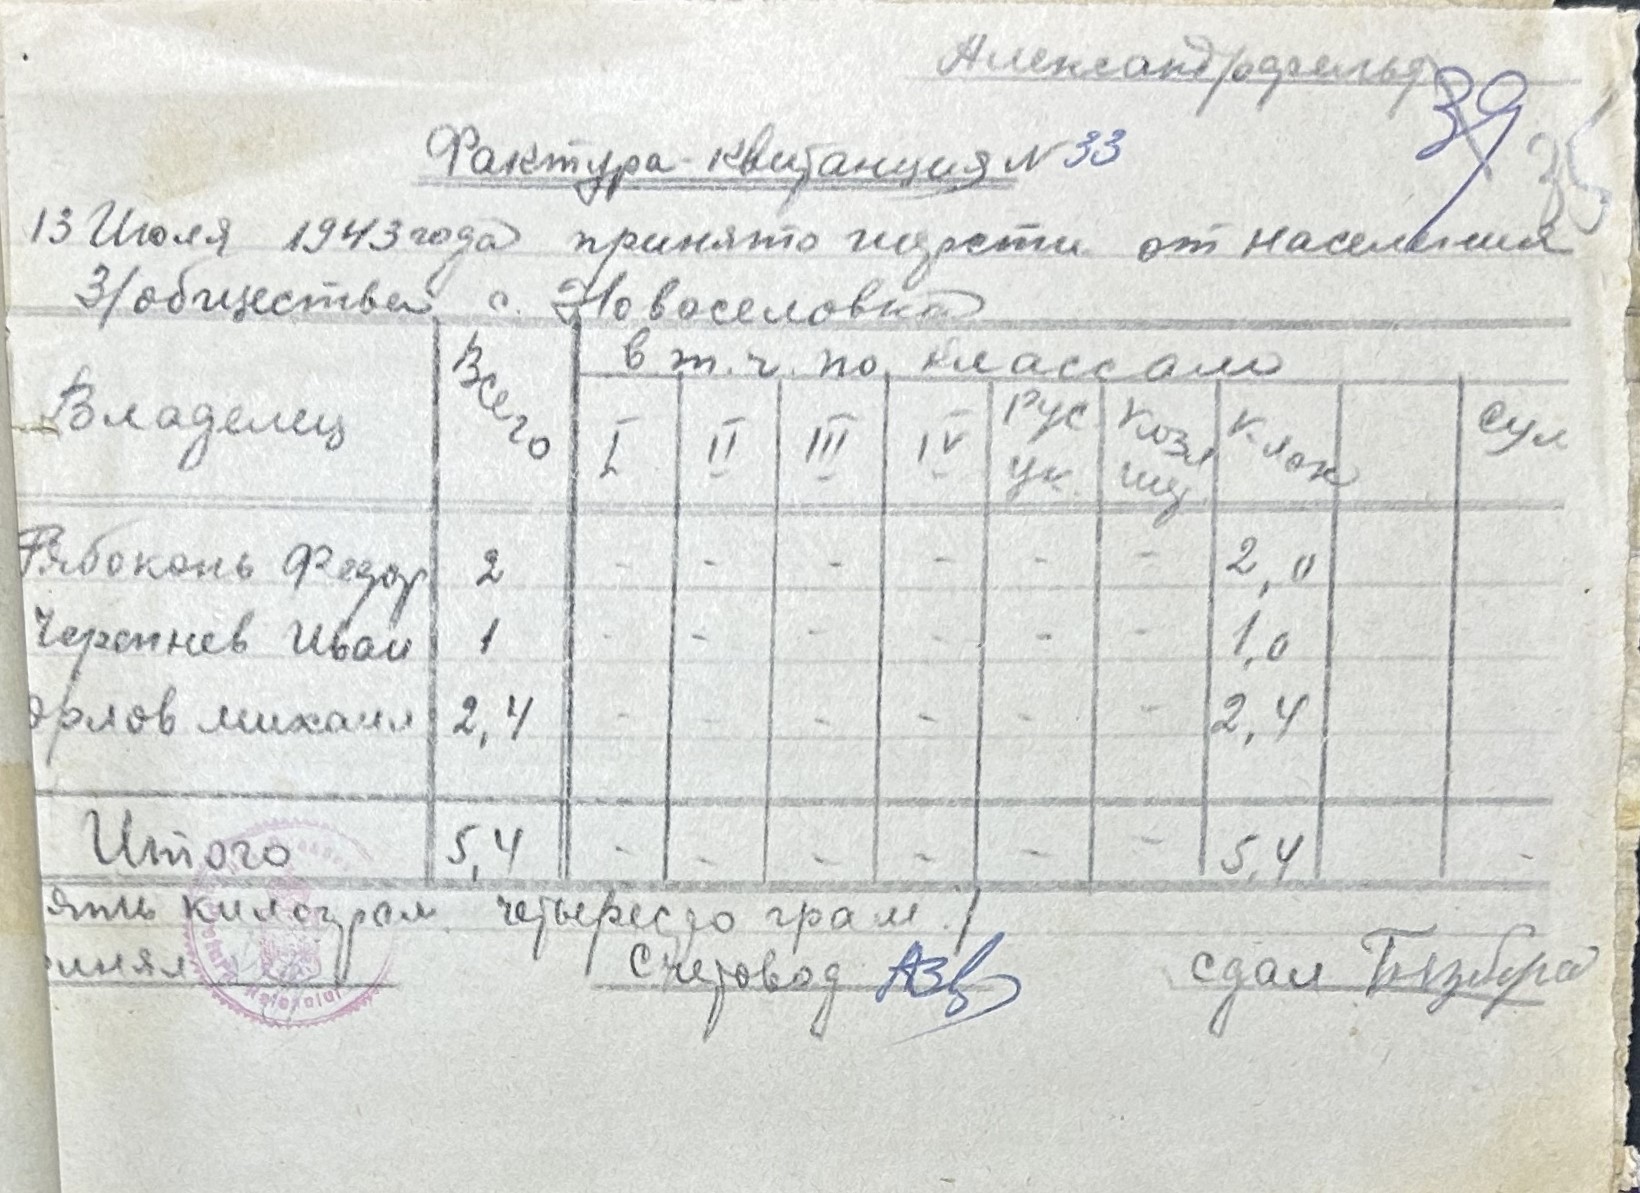 Александрофельд
39 35
Фактура-квитанция N 33
13 Июля 1943 года принято шерсти от населения
З/общества с. Новоселовка
Владелец Всего в т.ч. по классам
I II III IV Рус ук. Козл шер. Клок Сум
Рябоконь Федор 2 - - - - - - 2,0
Черепнев Иван 1 - - - - - - 1,0
Орлов Михаил 2,4 - - - - - - 2,4
Итого 5,4 - - - - - - 5,4 -
ять килограм четыресто грам /
инял Счетовод сдал